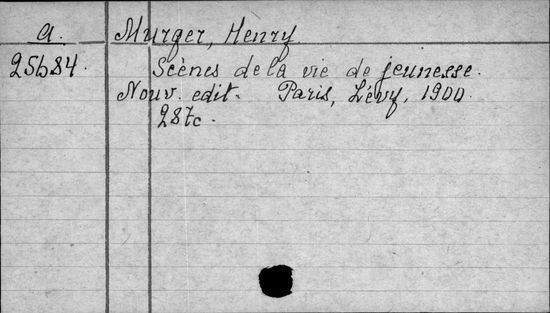 a. Murger, Henry.
25684. Scènes de la vie de jeunesse.
Nouv. edit. Paris, Lévy, 1900.
287c.